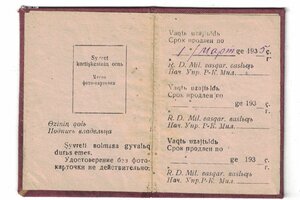 Syvret
kœrtişkesinin orьn
Место
фото-карточки
Өzinin qolь
Подпись владельца
Syvreti bolmasa gyvalьq
durьs emes.
Удостоверение без фото-
карточки не действительно.
Vaqtь uzajtьldь
Срок продлен по
1 март ge 1935 с.
г.
R. D. Mil. basqar. вaslьqь
Нач. Упр. Р.-К. Мил.
Vaqtь uzajtьldь
Срок продлен по
ge 193 с.
г.
R. D. Mil. basqar. вaslьqь
Нач. Упр. Р.-К. Мил.
Vaqtь uzajtьldь
Срок продлен по
ge 193 с.
г.
R. D. Mil. basqar. вaslьqь
Нач. Упр. Р.-К. Мил.